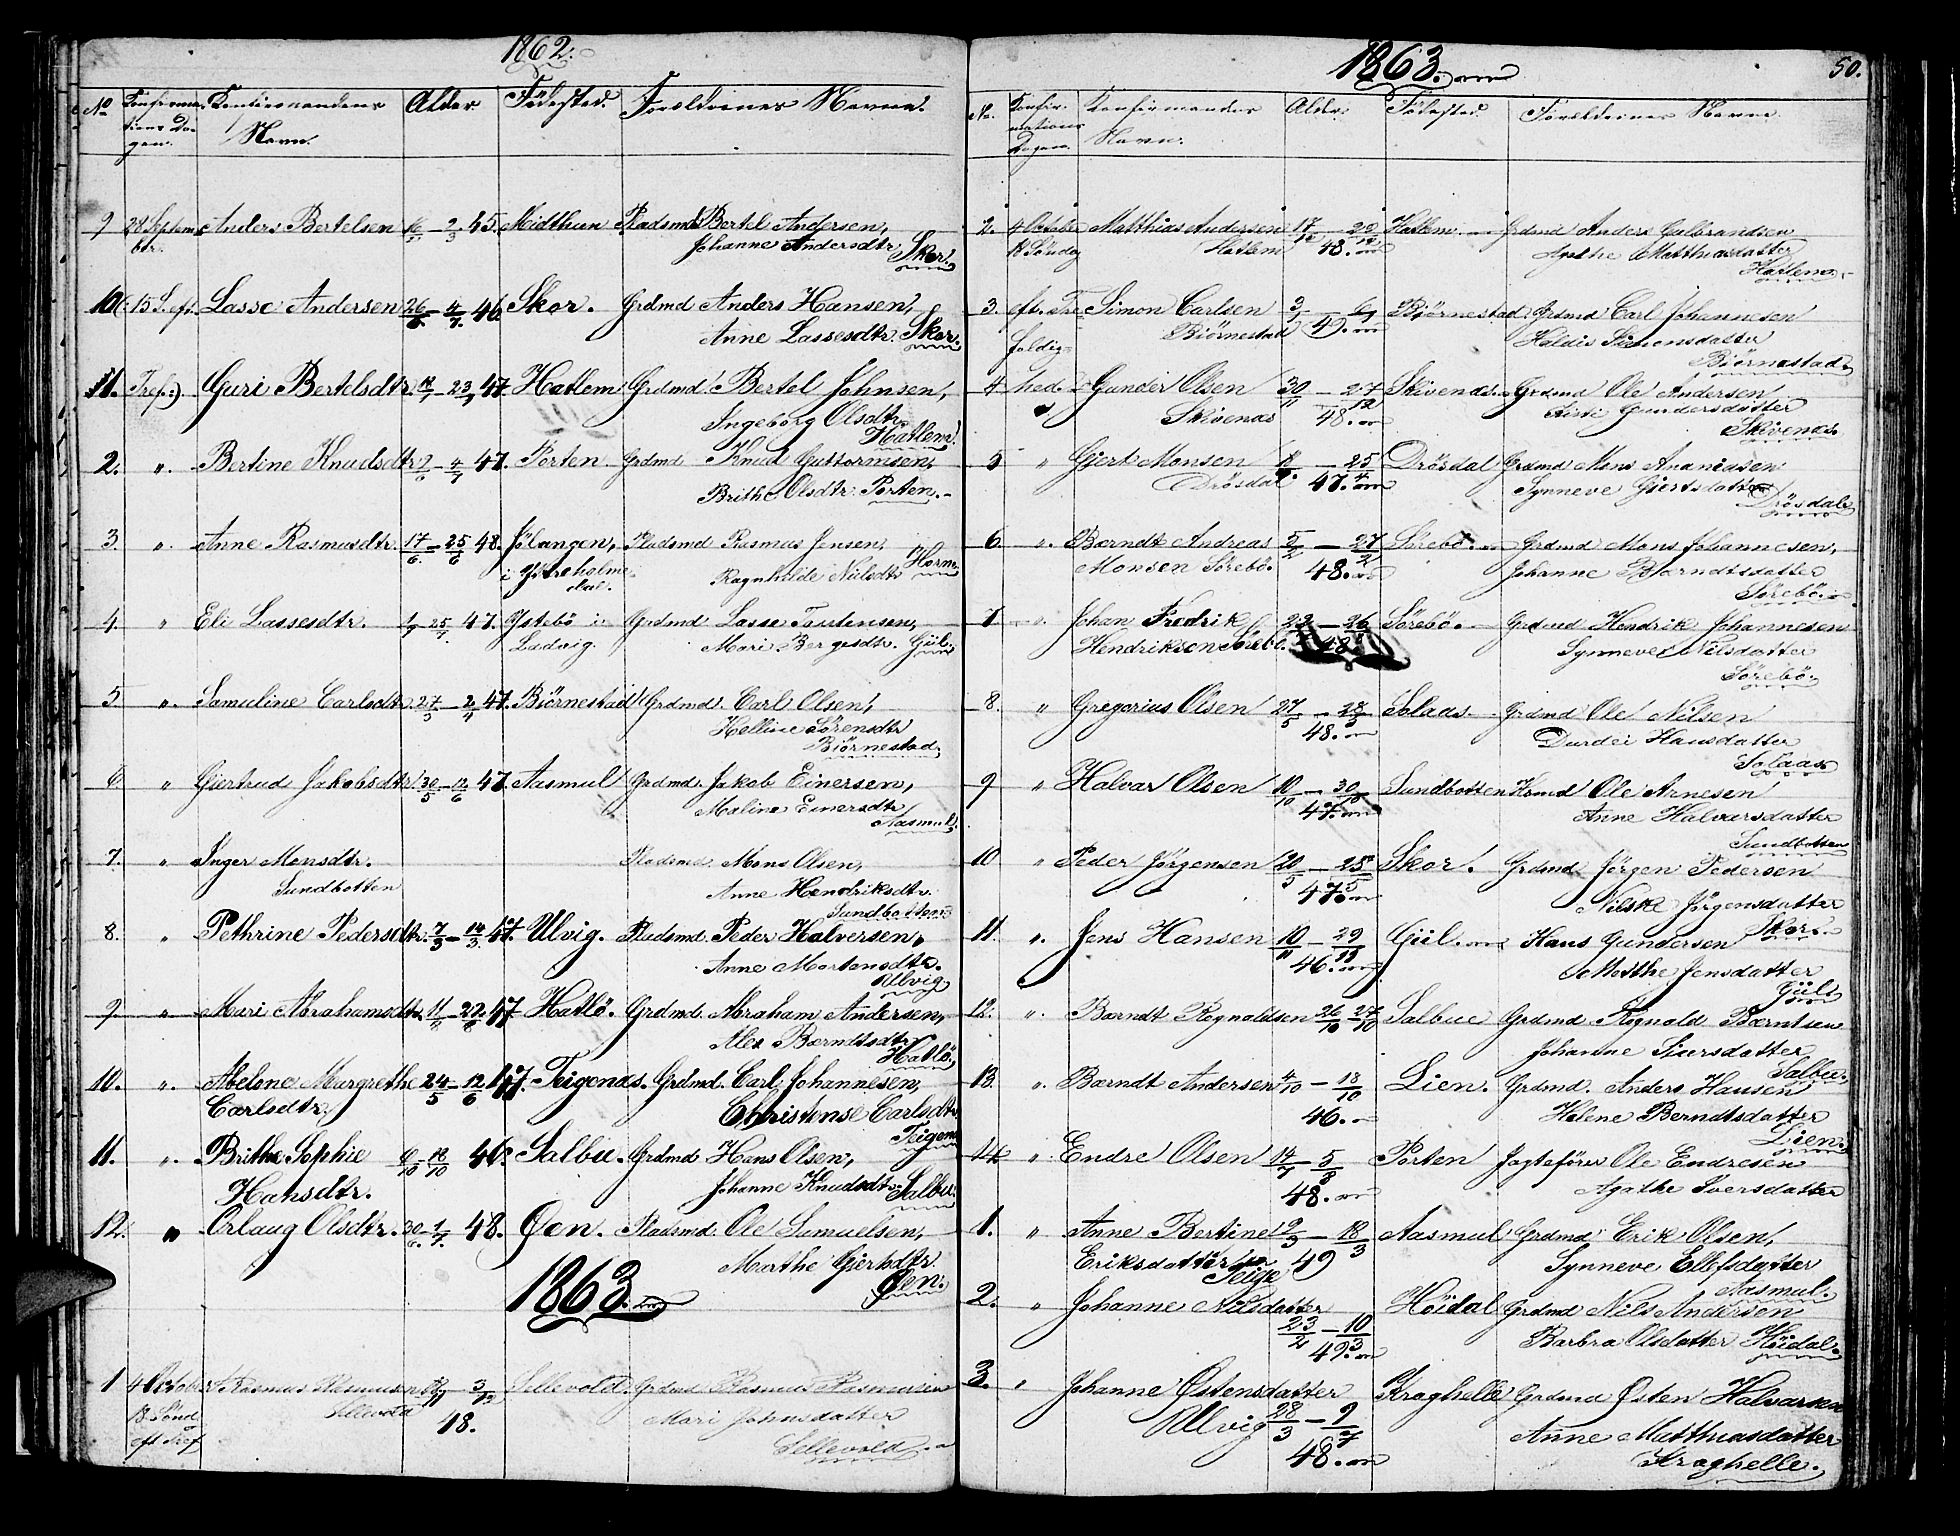 1862.
No Konfirma- Konfirmandens Alder Födested. Foreldrenes Navne.
tions Da- Navn.
gen.
9 28 Septem- Anders Bertelsen 2/3 45. Midthun Pladsmd Bertel Andersen,
ber. Johanne Andersdtr. Skor.
10 15 S. eft. Lasse Andersen 26/5 - 4/7 46 Skor. Grdmd Anders Hansen,
Anne Lassesdtr. Skor.
11. Tref.) Guri Bertelsdtr. 23/ 47 Hatlem Grdmd. Bertel Johnsen,
Ingeborg Olsdtr.
Hatlem.
2. ". Bertine Knudsdtr 7/6 - 4/7 47. Porten Grdmd Knud Guttormsen,
Brithe Olsdtr. Porten.
3. ". Anne Rasmusdtr. 17/6 - 25/6 48. Jölangen, Pladsmd Rasmus Jensen,
i Ragnhilde Nielsdtr
4. " Eli Lassesdtr. 25/7 47. Ystebö i Grdmd Lasse
Ladvig. Mari Bergesdtr. Giil.
5 ". Samuline Carlsdtr 27/3 - 2/4 47. Biörnestad Grdmd. Carl Olsen,
Helline Sörensdtr
Biörnestad.
6 " Giertrud Jakobsdtr. 30/5 - 12/6 47. Aasmul Grdmd. Jakob Einersen,
Maline Einersdtr
Aasmul.
7. " Inger Monsdtr. Pladsmd. Mons Olsen,
Sundbotten Anne Hendriksdtr.
Sundbotten
8. " Pethrine Pedersdtr. 7/3 - 14/3 47. Ulvig. Pladsmd. Peder Halversen,
Anne Mortensdtr.
Ulvig
9 " Mari Abrahamsdtr. 47 Hatlö. Grdmd. Abraham Andersen,
Berndtsdtr.
Hatlö.
10. ". Abelone Margrethe 24/5 - 12/6 47. Teigenæs. Grdmd. Carl Johannesen,
Carlsdtr. Christense Carlsdtr
11. ". Brithe Sophie 6/10 - 18/10 46. Salbu. Grdmd Hans Olsen,
Hansdtr. Johanne Knudsdtr. Salbu.
12. " Orlaug Olsdtr. 30/6 - 1/7 48. Øen. Pladsmd. Ole Samuelsen,
Marthe Giertsdtr.
Øen.
1863.
1 4 October Rasmus Rasmusen 3/12 Sellevold. Grdmd Rasmus Rasmusen
18. Sönd. Sellevold 48. Mari Johnsdatter
eft Tref Sellevold.
1863. 50.
No. Konfir- Konfirmandens Alder. Födested. Foreldrenes Navne.
mations Navn.
Dagen.
2. 4 October Matthias Andersen 17/12 - 29/12 Hatlem. Grdmd Anders Gulbrandsen
18 Söndag Hatlem 48. Agathe Matthiasdatter
Hatlem.
3. eft. Tre- Simon Carlsen Biörnestad Grdmd Carl Johannesen
foldig- Biörnestad 49. Haldis Simonsdatter
Biörnestad.
4 hed. Gunder Olsen 30/11 - 27/12 Skivenæs. Grdmd Ole Andersen
Skivenæs 48. Gundersdatter
Skivenæs.
5 " Gjert Monsen 25/4 Drösdal Grdmd Mons Ananiasen
Drösdal 47. Synneve Giertsdatter
Drösdal.
6. ". Berndt Andreas 5/2 - 27/2 Sörebö. Grdmd Mons Johannesen,
Monsen Sörebö. 48. Johanne Berndtsdatter
Sörebö.
7 ". Johan Fredrik Sörebö. Grdmd Hendrik Johannesen
Hendriksen Sörebö. 48 Synneve Nilsdatter
Sörebö.
8. " Gregorius Olsen Solaas. Grdmd Ole Nilsen
48. Durdei Hansdatter
Solaas
9 " Halvar Olsen 10/10 - 30/10 Sundbotten Ole Arnesen
47. Anne Halvarsdatter
Sundbotten
10 " Peder Jörgensen 20/5 - 25/5 Skor. Grdmd Jörgen Pedersen
47. Jörgensdatter
Skor.
11. ". Jens Hansen 10/11 - 29/11 Giil. Hans Gundersen
46. Marthe Jensdatter
Giil.
12. ". Berndt Regnaldsen 26/10 - 27/10 Salbue Grdmd Regnald Berntsen
Johanne
Salbu.
13. ". Berndt Andersen 4/10 - 18/10 Lien. Grdmd. Anders Hansen
46. Helene Berndtsdatter
Lien.
14. " Endre Olsen 14/7 - 5/8 Porten Jagtefører Ole Endresen
48. Agathe Iversdatter
1. " Anne Bertine 9/3 - 18/3 Aasmul Grdmd Erik Olsen,
Eriksdatter 49 Synneve Ellefsdatter
Teige Aasmul.
2. " Johanne Nilsdatter Höidal Grdmd Nils Andersen
23/2 - 10/3 Barbra Olsdatter Höidal.
49.
3. " Johanne Østensdatter Kraghelle Grdmd Østen Halvarsen
Ulvig 28/3 - 9/7 Anne Matthiasdatter
48. Kraghelle.